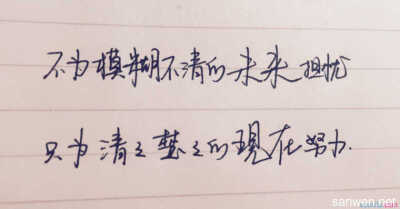 不为模糊不清的未来担忧
只为清清楚楚的现在努力.
sanwen.net